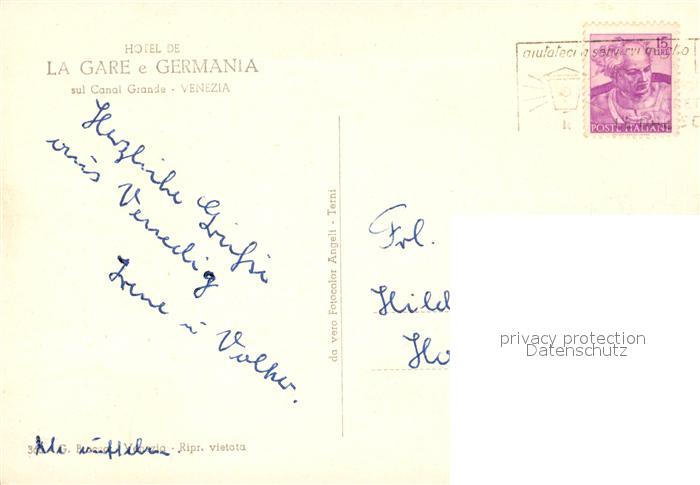 HOTEL DE
LA GARE e GERMANIA
sul Canal Grande - VENEZIA
aiutateci a servirvi meglio
15
LIRE
POSTE ITALIANE
Herzliche Grüße
aus Venedig
Irene u Volker.
da vero Fotocolor Angeli - Terni
Frl.
Hild
Ho
privacy protection
Datenschutz
G. Venezia - Ripr. vietata